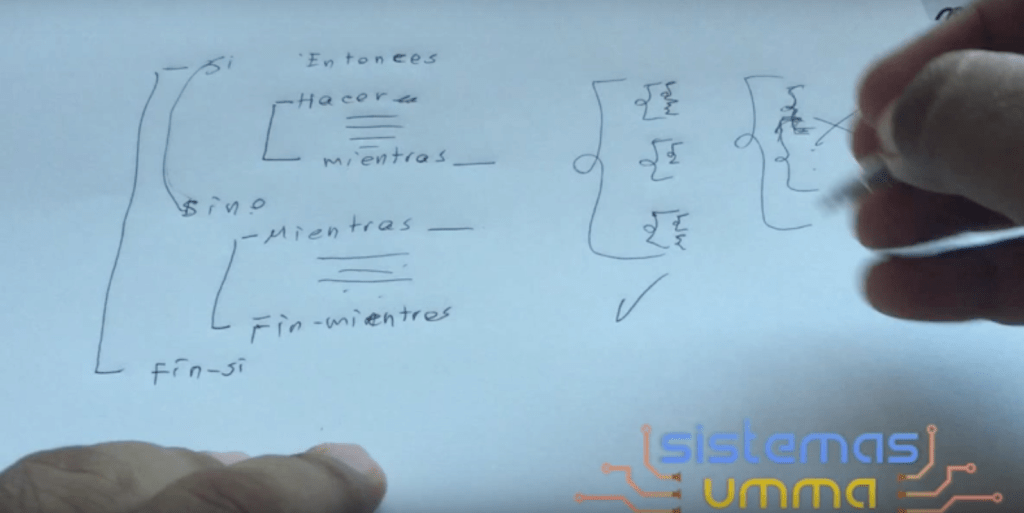 Si Entonces
Hacer
mientras
Sino
Mientras
Fin-mientres
Fin-si
sistemas
umma